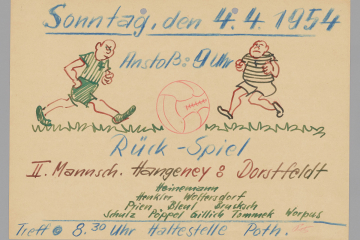 Sonntag, den 4.4.1954
Anstoß: 9 Uhr
Rück-Spiel
II. Mannsch. Hangeney : Dorstfeldt
Heinemann
Henkler Weltersdorf
Prien Bleul Drucksch
Schulz Pöppel Gillich Tommek Worpus
Treff 8.30 Uhr Haltestelle Poth.